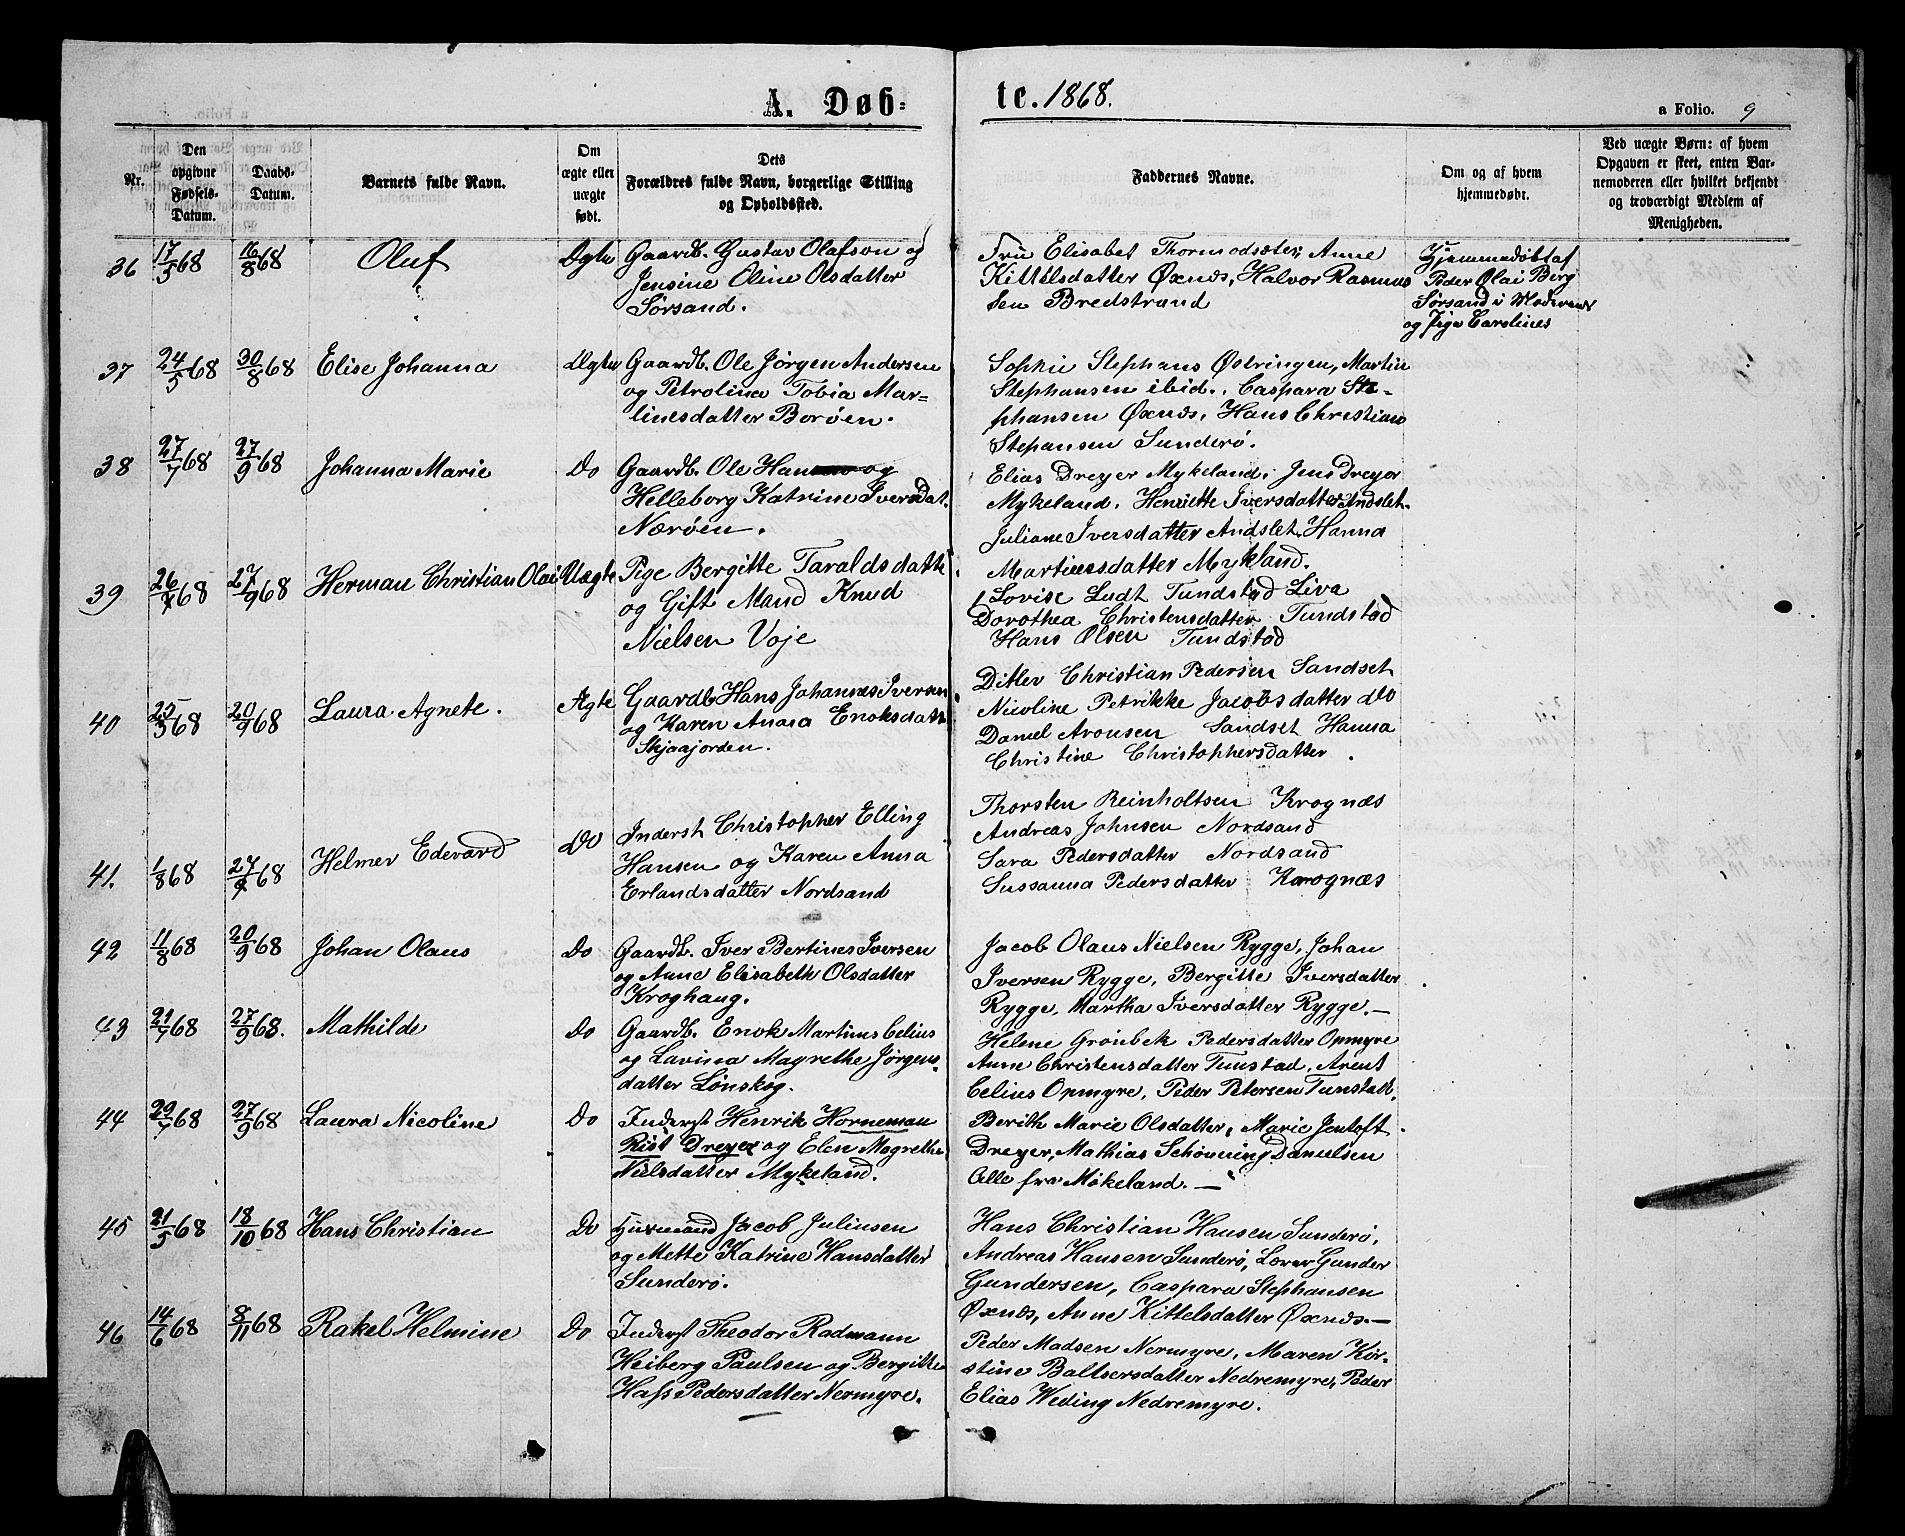 A. Døb=
te. 1868.
a Folio. 9
Nr.
Den
opgivne
Fødsels-
Datum.
Daabs-
Datum.
Barnets fulde Navn.
Om
ægte eller
uægte
født.
Dets
Forældres fulde Navn, borgerlige Stilling
og Opholdssted.
Faddernes Navne.
Om og af hvem
hjemmedøbt.
Ved uægte Børn: af hvem
Opgaven er skeet, enten Bar-
nemoderen eller hvilket bekjendt
og troværdigt Medlem af
Menigheden.
36 17/5 68 16/8 68 Oluf Ægte Gaardb. Gustav Olafson og
Jensine Oline Olsdatter
Sørsand.
Fru Elisabet Thormodsæter, Anne
Kittelsdatter Øxnæs, Halvor Rasmus
sen Bredstrand
Hjemmedøbt af
Peder Olai Berg
Sørsand i Moderens
og Pige Carolines
37 24/5 68 30/8 68 Elise Johanna Ægte Gaardb. Ole Jørgen Andersen
og Petrolina Tobia Mar=
tinesdatter Borøen.
Sophie Stephans Østringen, Martin
Stephansen ibid., Caspara Ste-
phansen Øxnæs, Hans Christian
Stepansen Sunderø.
38 27/7 68 27/9 68 Johanna Marie Do Gaardb. Ole Han og
Helleborg Katrine Iversdat.
Nærøen.
Elias Dreyer Mykeland, Jens Dreyer
Mykeland, Henriette Iversdatter Andslet.
Juliane Iversdatter Andslet, Hanna
Martinesdatter Mykland.
39 26/7 68 27/9 68 Herman Christian Olai Uægte Pige Bergitte Taraldsdatte
og Gift Mand Knud
Nielsen Voje
Lovise Ludt Tundstad Liva
Dorothea Christensdatter Tundstad
Hans Olsen Tundstad
40 25/5 68 20/9 68 Laura Agnete. Ægte Gaardb Hans Johannes Iversen
og Karen Anna Enoksdatt
Skjaajorden.
Ditlev Christian Pedersen Sandset
Nicoline Petrikke Jacobsdatter do
Daniel Aronsen Sandset Hanna
Christine Christophersdatter.
41. 1/8 68 27/9 68 Helmer Edevard Do Inderst Christopher Elling
Hansen og Karen Anna
Erlandsdatter Nordsand
Thorsten Reinholtsen Krognæs
Andreas Johnsen Nordsand
Sara Pedersdatter Nordsand
Sussanna Pedersdatter Krognæs
42 11/8 68 20/9 68 Johan Olaus Do Gaardb. Iver Bertines Iversen
og Anne Elisabeth Olsdatter
Kroghaug.
Jacob Olaus Nielsen Rygge, Johan
Iversen Rygge, Bergitte Iversdatter
Rygge, Martha Iversdatter Rygge.—
43 21/7 68 27/9 68. Mathilde Do Gaardb. Enok Martinus Celius
og Lavina Magrethe Jørgens-
datter Lønskog.
Helene Grønbek Pedersdatter Opmyre
Anne Christensdatter Tunstad, Arent
Celius Opmyre, Peder Petersen Tunstad.
44 29/7 68 27/9 68 Laura Nicoline Do Inderst Henrik Horneman
Rist Dreyer og Elen Magrethe
Nielsdatter Mykeland.
Berith Marie Olsdatter, Marie Jentoft
Dreyer, Mathias Schønning Danielsen
Alle fra Møkeland.—
45 21/5 68 18/10 68 Hans Christian Do Husmand Jacob Juliusen
og Mette Katrine Hansdatter
Sunderø.
Hans Christian Hansen Sunderø,
Andreas Hansen Sunderø, Lærer Gunder
Gundersen, Caspara Stephansen
Øxnæs, Anne Kittelsdatter Øxnæs.—
46 14/6 68 8/11 68 Rakel Helmine Do Inderst Theodor Rodmann
Heiberg Paulsen og Bergitte
Hass Pedersdatter Nermyre.
Peder Madsen Nermyre, Maren Kir-
stine Baltsersdatter Nedremyre, Peder
Elias Weding Nedremyre.